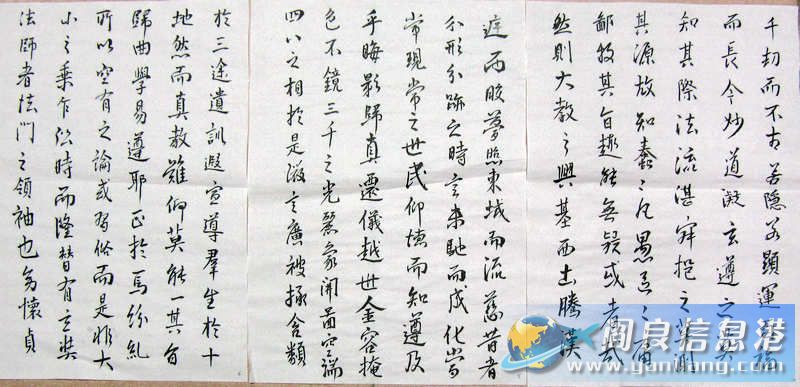 千劫而不古若隱若顯運百福
而長今妙道凝玄遵之莫
知其際法流湛寂挹之莫測
其源故知蠢々凡愚區々庸
鄙投其旨趣能無疑惑者哉
然則大教之興基西土騰漢
庭而皎夢照東域而流慈昔者
分形分跡之時言未馳而成化當
常現常之世民仰德而知遵及
乎晦影歸真遷儀越世金容掩
色不鏡三千之光麗象開圖空端
四八之相於是微言廣被拯含類
於三途遺訓遐宣導群生於十
地然而真教難仰莫能一其旨
歸曲學易遵耶正於焉紛糺
所以空有之論或習俗而是非大
小之乘乍沿時而隆替有玄奘
法師者法門之領袖也幼懷貞
阎良信息港
yanliang.cc